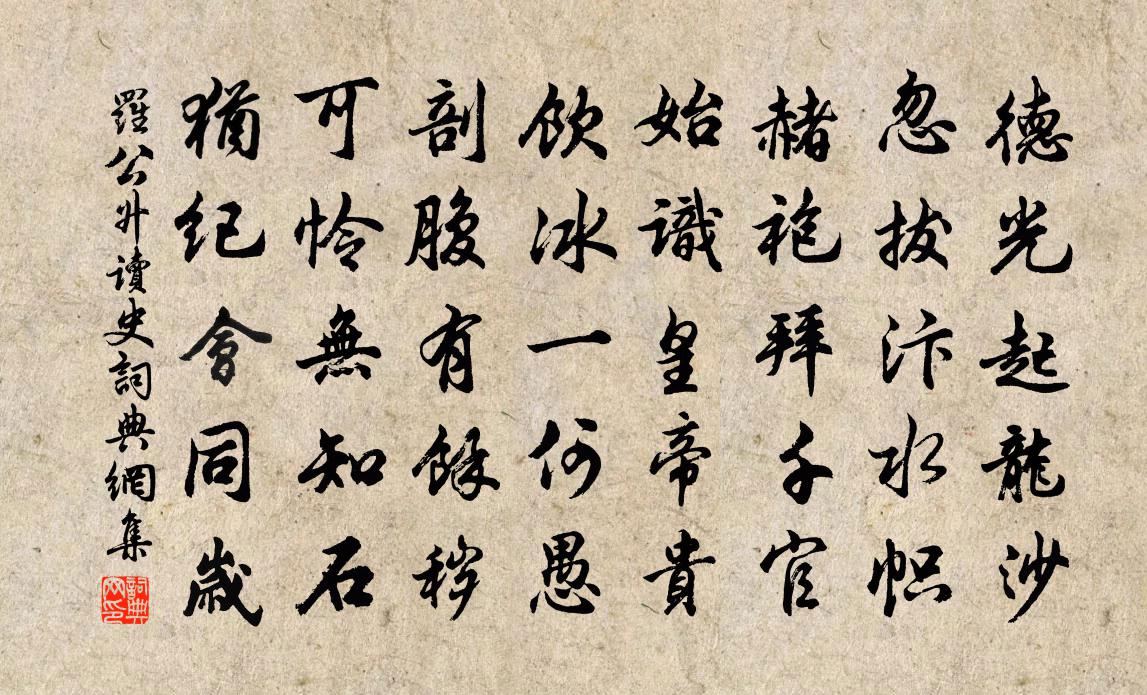 德光起龍沙
忽拔汴水幟
赭袍拜千官
始識皇帝貴
飲冰一何愚
剖腹有餘穢
可憐無知石
猶紀會同歲
羅公升讀史詞典網集
詞典網印